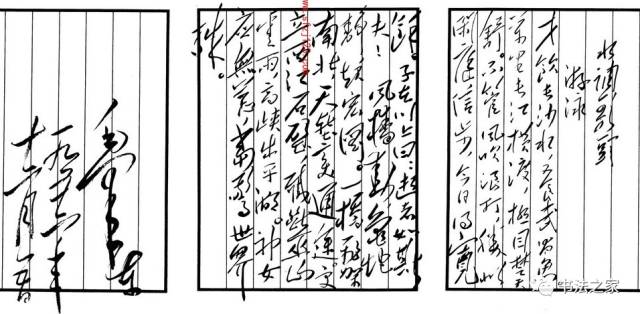 水调歌头
游泳
才饮长沙水，又食武昌鱼
万里长江横渡，极目楚天
舒。不管风吹浪打，胜似
闲庭信步，今日得宽
馀。子在川上曰：逝者如斯
夫！风樯动，龟蛇
静，起宏图。一桥飞架
南北，天堑变通途。更
立西江石壁，截断巫山
云雨，高峡出平湖。神女
应無恙，當驚世界
殊。
毛泽东
一九五六年
十二月
书法之家